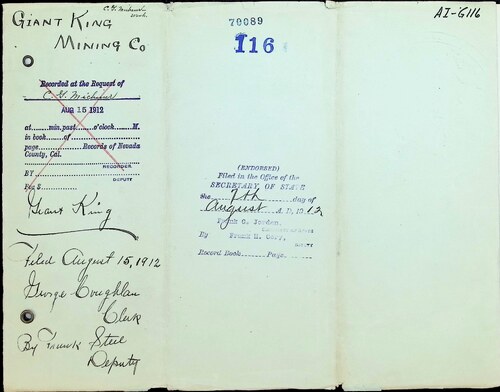 GIANT KING
MINING CO
Recorded at the Request of
AUG 15 1912
at min. past o'clock M.
in book of
page Records of Nevada
County, Cal.
RECORDER
BY
DEPUTY
Fee $
Giant King
Filed August 15, 1912
George Coughlan
Clerk
By Frank Steel
Deputy
70089
116
(ENDORSED)
Filed in the Office of the
SECRETARY OF STATE
the 7th day of
August A. D. 1912
Frank C. Jordan,
By Frank H. Cory,
DEPUTY
Record Book Page
AI-G116